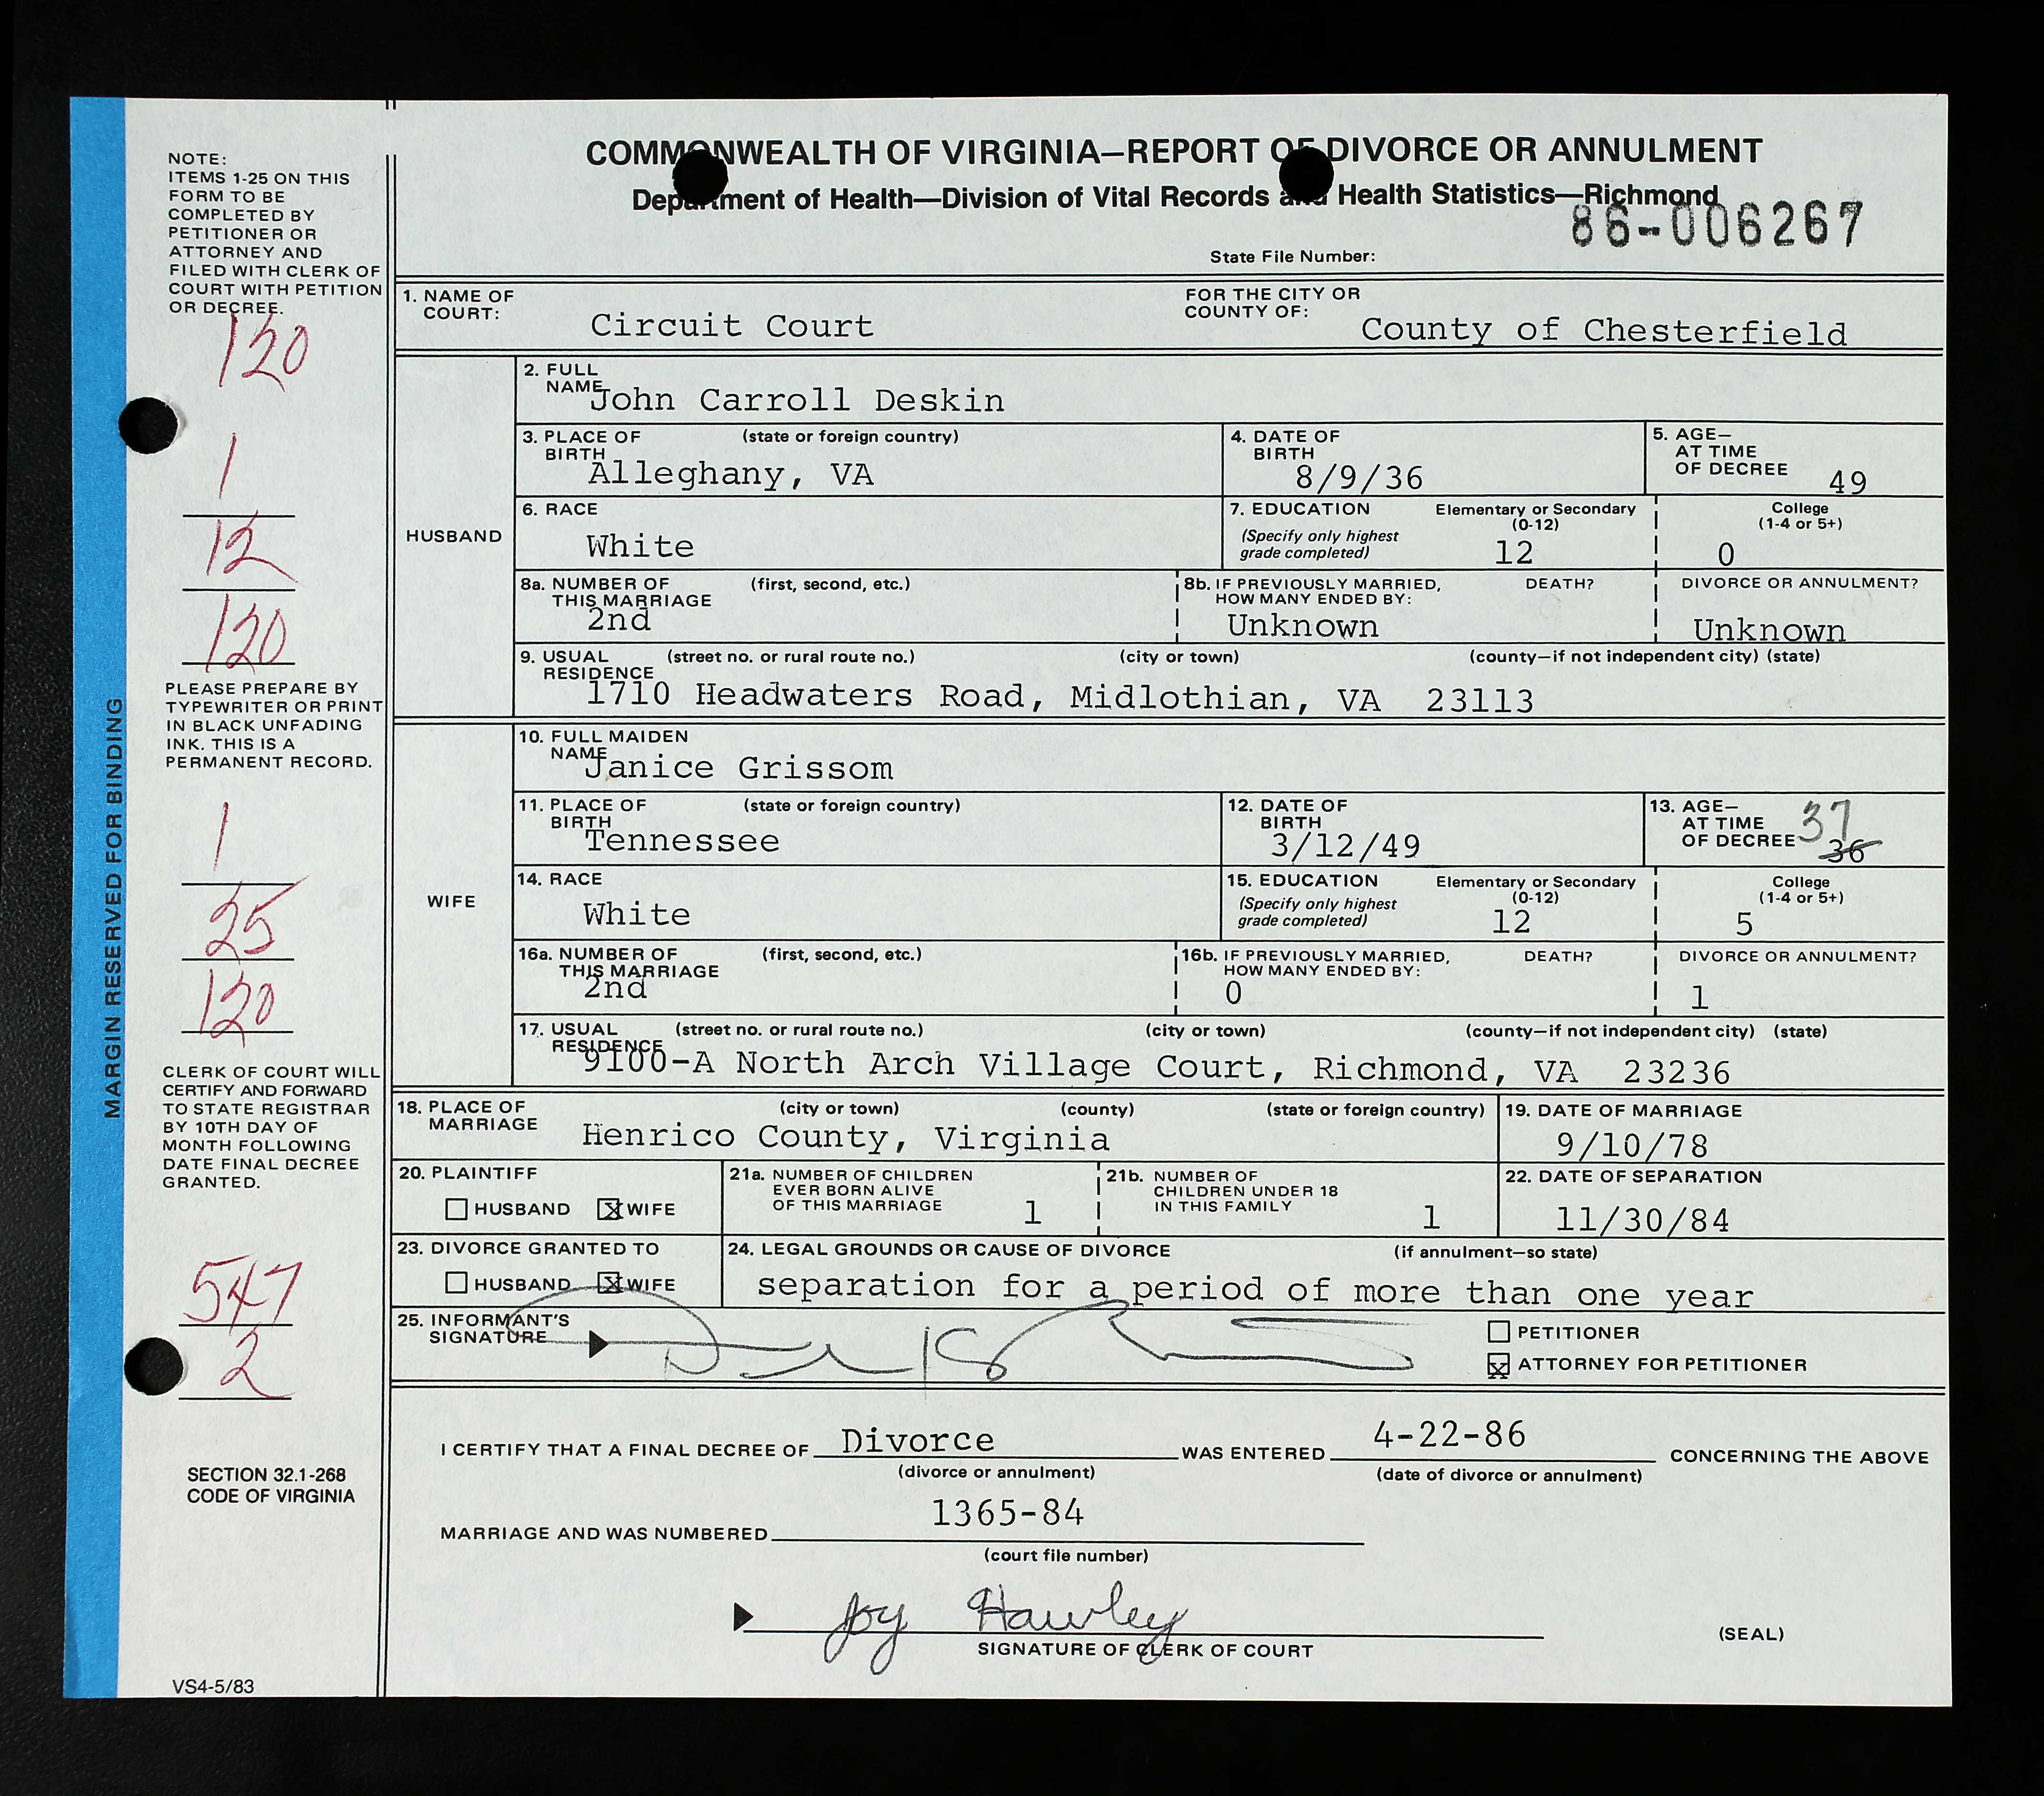 COMMONWEALTH OF VIRGINIA—REPORT OF DIVORCE OR ANNULMENT
Department of Health—Division of Vital Records and Health Statistics—Richmond
86-006267
State File Number:
NOTE:
ITEMS 1-25 ON THIS
FORM TO BE
COMPLETED BY
PETITIONER OR
ATTORNEY AND
FILED WITH CLERK OF
COURT WITH PETITION
OR DECREE.
120
1
12
120
PLEASE PREPARE BY
TYPEWRITER OR PRINT
IN BLACK UNFADING
INK. THIS IS A
PERMANENT RECORD.
1
25
120
CLERK OF COURT WILL
CERTIFY AND FORWARD
TO STATE REGISTRAR
BY 10TH DAY OF
MONTH FOLLOWING
DATE FINAL DECREE
GRANTED.
547
2
SECTION 32.1-268
CODE OF VIRGINIA
VS4-5/83
MARGIN RESERVED FOR BINDING
1. NAME OF COURT: Circuit Court FOR THE CITY OR COUNTY OF: County of Chesterfield
HUSBAND
2. FULL NAME John Carroll Deskin
3. PLACE OF BIRTH (state or foreign country) Alleghany, VA 4. DATE OF BIRTH 8/9/36 5. AGE— AT TIME OF DECREE 49
6. RACE White 7. EDUCATION (Specify only highest grade completed) Elementary or Secondary (0-12) 12 College (1-4 or 5+) 0
8a. NUMBER OF THIS MARRIAGE (first, second, etc.) 2nd 8b. IF PREVIOUSLY MARRIED, HOW MANY ENDED BY: DEATH? Unknown DIVORCE OR ANNULMENT? Unknown
9. USUAL RESIDENCE (street no. or rural route no.) (city or town) (county—if not independent city) (state)
1710 Headwaters Road, Midlothian, VA 23113
WIFE
10. FULL MAIDEN NAME Janice Grissom
11. PLACE OF BIRTH (state or foreign country) Tennessee 12. DATE OF BIRTH 3/12/49 13. AGE— AT TIME OF DECREE 37 36
14. RACE White 15. EDUCATION (Specify only highest grade completed) Elementary or Secondary (0-12) 12 College (1-4 or 5+) 5
16a. NUMBER OF THIS MARRIAGE (first, second, etc.) 2nd 16b. IF PREVIOUSLY MARRIED, HOW MANY ENDED BY: DEATH? 0 DIVORCE OR ANNULMENT? 1
17. USUAL RESIDENCE (street no. or rural route no.) (city or town) (county—if not independent city) (state)
9100-A North Arch Village Court, Richmond, VA 23236
18. PLACE OF MARRIAGE (city or town) (county) (state or foreign country) Henrico County, Virginia 19. DATE OF MARRIAGE 9/10/78
20. PLAINTIFF HUSBAND X WIFE 21a. NUMBER OF CHILDREN EVER BORN ALIVE OF THIS MARRIAGE 1 21b. NUMBER OF CHILDREN UNDER 18 IN THIS FAMILY 1 22. DATE OF SEPARATION 11/30/84
23. DIVORCE GRANTED TO HUSBAND X WIFE 24. LEGAL GROUNDS OR CAUSE OF DIVORCE (if annulment—so state) separation for a period of more than one year
25. INFORMANT'S SIGNATURE PETITIONER
X ATTORNEY FOR PETITIONER
I CERTIFY THAT A FINAL DECREE OF Divorce WAS ENTERED 4-22-86 CONCERNING THE ABOVE
(divorce or annulment) (date of divorce or annulment)
MARRIAGE AND WAS NUMBERED 1365-84
(court file number)
Joy Hawley
SIGNATURE OF CLERK OF COURT (SEAL)